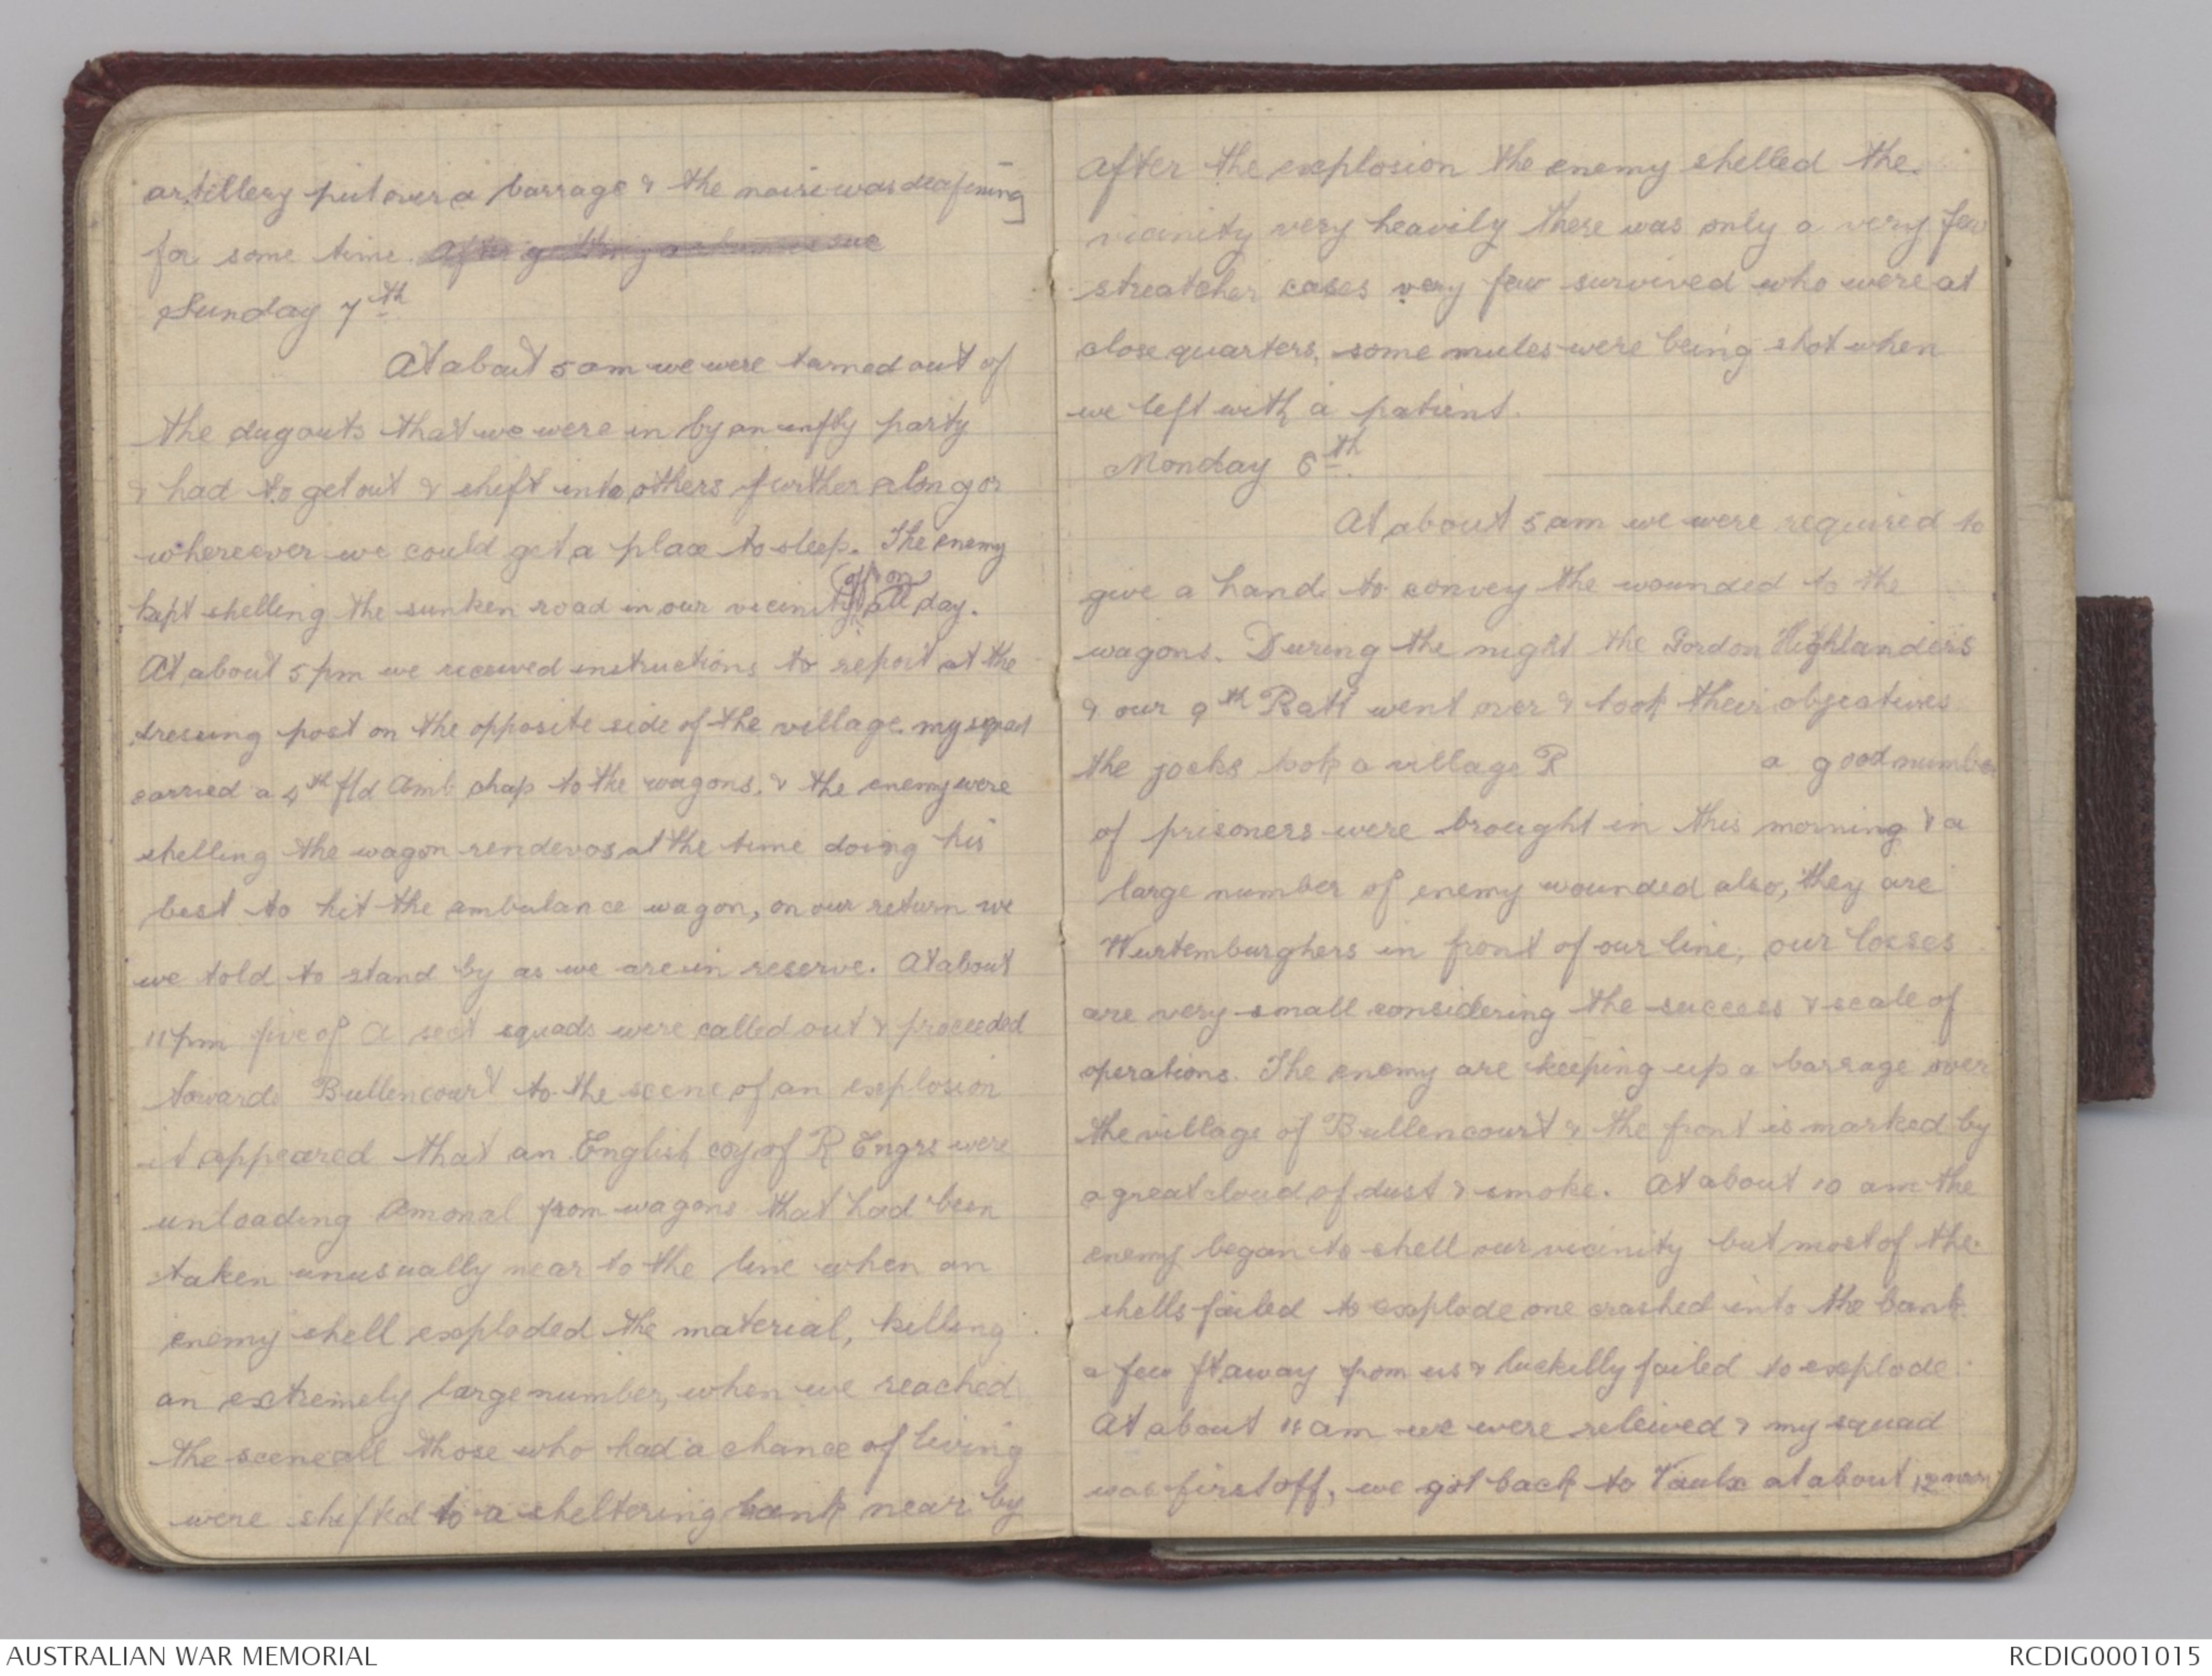 artillery put over a barrage & the noise was deafening
for some time. After getting a
Sunday 7th
At about 5 am we were turned out of
the dugouts that we were in by an infty party
& had to get out & shift into others further along or
whereever we could get a place to sleep. The enemy
kept shelling the sunken road in our vicinity off & on all day.
At about 5 pm we received instructions to report at the
dressing post on the opposite side of the village. my squad
carried a 4th fld Amb chap to the wagons, & the enemy were
shelling the wagon rendevos at the time doing his
best to hit the ambulance wagon, on our return we
we told to stand by as we are in reserve. At about
11 pm five of A sect squads were called out & proceeded
towards Bullencourt to the scene of an explosion
it appeared that an English coy of R Engrs were
unloading Amonal from wagons that had been
taken unusually near to the line when an
enemy shell exploded the material, killing
an extremely large number, when we reached
the scene all those who had a chance of living
were shifted to a sheltering bank near by
After the explosion the enemy shelled the
vicinity very heavily there was only a very few
streatcher cases very few survived who were at
close quarters, some mules were being shot when
we left with a patient.
Monday 8th
At about 5 am we were required to
give a hand to convey the wounded to the
wagons. During the night the Gordon Highlanders
& our 9th Batt went over & took their objectives
the jocks took a village R a good number
of prisoners were brought in this morning & a
large number of enemy wounded also, they are
Wurtemburghers in front of our line, our losses
are very small considering the success & scale of
operations. The enemy are keeping up a barrage over
the village of Bullencourt & the front is marked by
a great cloud of dust & smoke. At about 10 am the
enemy began to shell our vicinity but most of the
shells failed to explode one crashed into the bank
a few ft away from us & luckilly failed to explode
At about 11 am we were releived & my squad
was first off, we got back to Vaulx at about 12 noon
AUSTRALIAN WAR MEMORIAL
RCDIG0001015